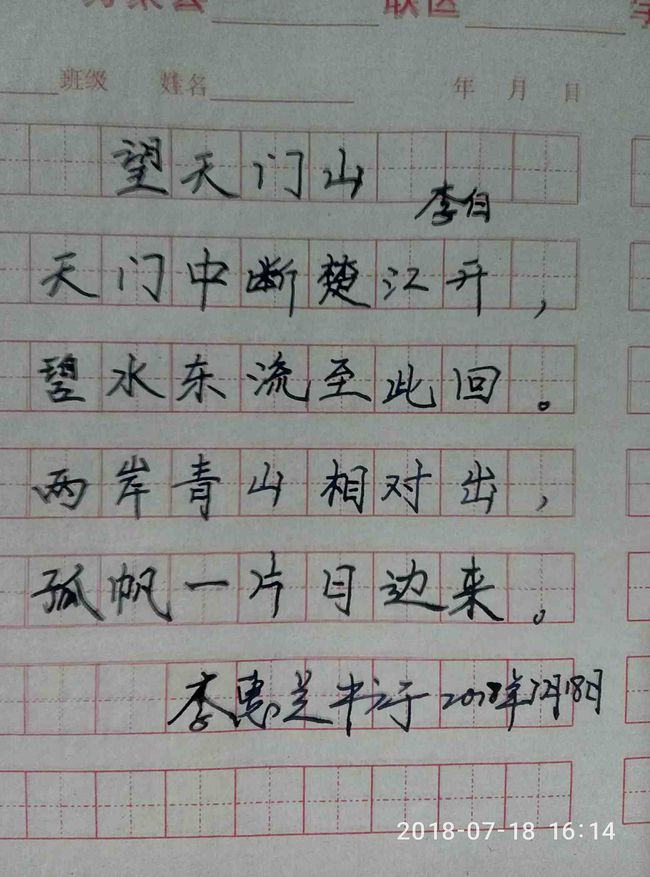 联区
班级 姓名 年 月 日
望天门山
李白
天门中断楚江开，
碧水东流至此回。
两岸青山相对出，
孤帆一片日边来。
李惠兰书于2018年7月18日
2018-07-18 16:14